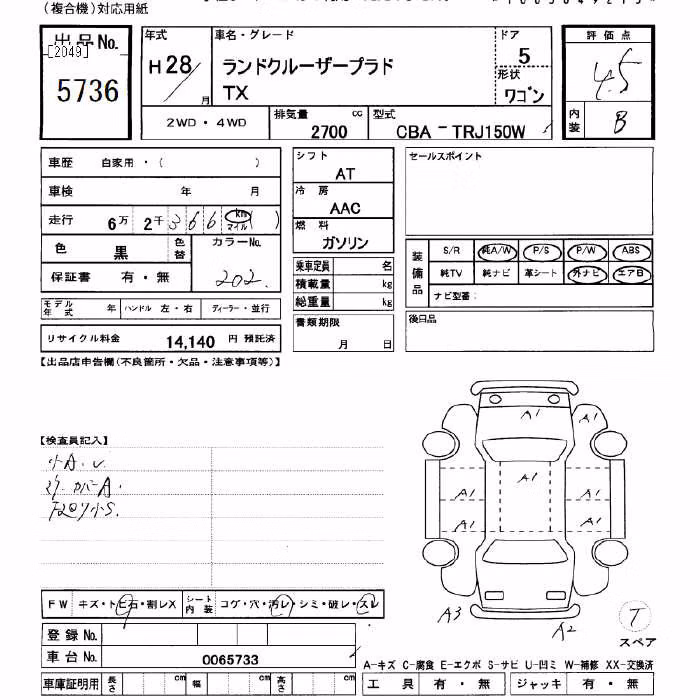 (複合機)対応用紙
出品No.
[2049]
5736
年式
H28/
月
車名・グレード
ランドクルーザープラド
TX
ドア
5
形状
ワゴン
評価点
4.5
内装
B
2WD・4WD
排気量
cc
2700
型式
CBA-TRJ150W
車歴 自家用・( )
車検 年 月
走行 6万 2千 366 km マイル ( )
色 黒 色替 カラーNo.
202
保証書 有・無
モデル年式 年 ハンドル 左・右 ディーラー・並行
リサイクル料金 14,140 円 預託済
シフト
AT
冷房
AAC
燃料
ガソリン
乗車定員 名
積載量 kg
総重量 kg
書類期限
月 日
セールスポイント
装備品
S/R 純A/W P/S P/W ABS
純TV 純ナビ 革シート 外ナビ エアB
ナビ型番:
後日品
【出品店申告欄(不良箇所・欠品・注意事項等)】
【検査員記入】
小A.U
FW キズ・トビ石・割レX シート内装 コゲ・穴・汚レ・シミ・破レ・スレ
登録No.
車台No. 0065733
車庫証明用 長さ cm 幅 cm 高さ cm
A1
A1
A1
A1 A1
A1 A1
A3
A2
T
スペア
A-キズ C-腐食 E-エクボ S-サビ U-凹ミ W-補修 XX-交換済
工具 有・無 ジャッキ 有・無